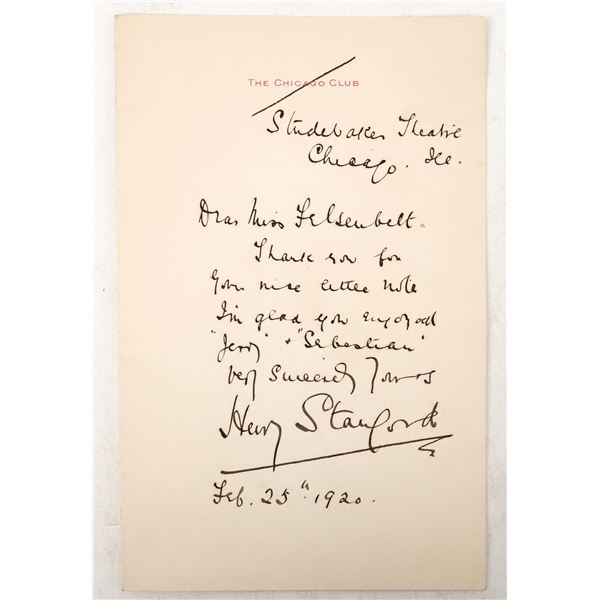 THE CHICAGO CLUB
Studebaker Theatre
Chicago. Ill.
Dear Miss Felsenbelt.
Thank you for
your nice little note
I'm glad you enjoyed
"Jerry" & "Sebastian"
Very Sincerely Yours
Henry Stanford
Feb. 25th 1920.